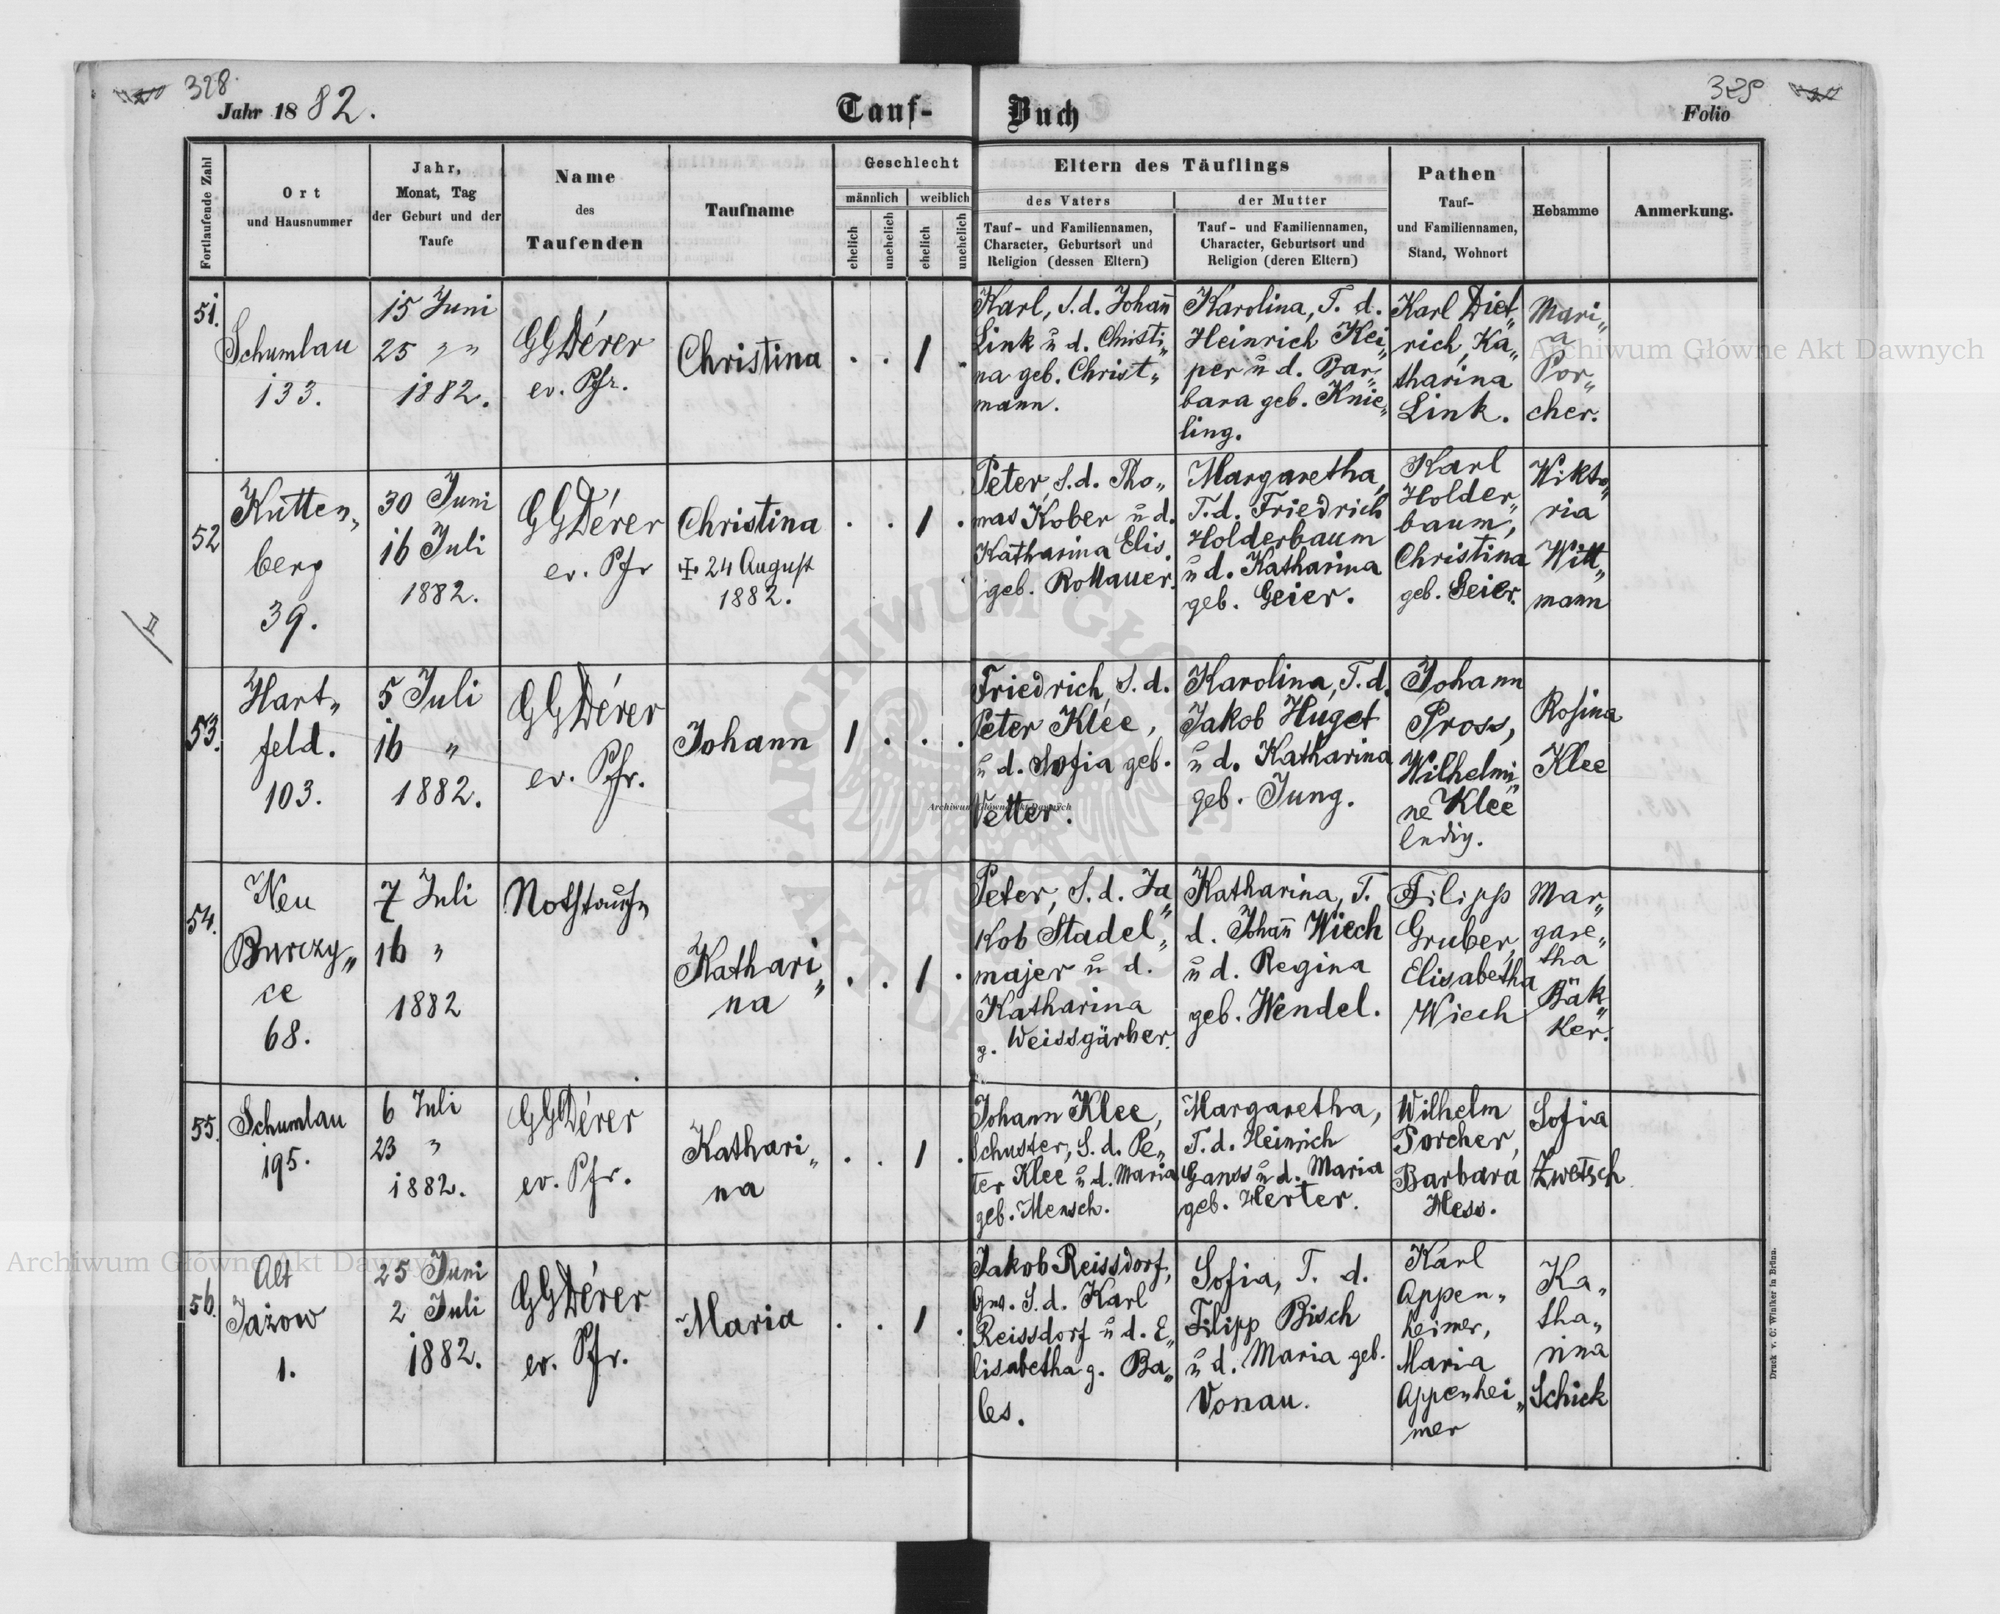 328.
Jahr 1882.
Tauf-
Buch
325
Folio
Fortlaufende Zahl
Ort
und Hausnummer
Jahr,
Monat, Tag
der Geburt und der
Taufe
Name
des
Taufenden
Taufname
Geschlecht
männlich
weiblich
ehelich
unehelich
ehelich
unehelich
Eltern des Täuflings
des Vaters
Tauf- und Familiennamen,
Character, Geburtsort und
Religion (dessen Eltern)
der Mutter
Tauf- und Familiennamen,
Character, Geburtsort und
Religion (deren Eltern)
Pathen
Tauf-
und Familiennamen,
Stand, Wohnort
Hebamme
Anmerkung.
51.
Schumlau
133.
15 Juni
25 " "
1882.
GGDérer
ev. Pfr.
Christina
. . 1 .
Karl, S. d. Johañ
Link u d. Christi„
na geb. Christ„
mann.
Karolina, T. d.
Heinrich Kei„
per u d. Bar„
bara geb. Knie„
ling.
Karl Diet„
rich, Ka„
tharina
Link.
Mari„
a
Por„
cher.
52
Kutten„
berg
39.
30 Juni
16 Juli
1882.
GGDérer
ev. Pfr
Christina
✠ 24 August
1882.
. . 1 .
Peter, S. d. Tho„
mas Kober u d.
Katharina Elis.
geb. Rottauer.
Margaretha,
T. d. Friedrich
Holderbaum
u d. Katharina
geb. Geier.
Karl
Holder„
baum,
Christina
geb. Geier.
Wikto„
ria
Witt„
mann
II
53.
Hart„
feld.
103.
5 Juli
16 "
1882.
GGDérer
ev. Pfr.
Johann
1 . . .
Friedrich, S. d.
Peter Klee,
u d. Sofia geb.
Vetter.
Karolina, T. d.
Jakob Huget
u d. Katharina
geb. Jung.
Johann
Pross,
Wilhelmi„
ne Klee
ledig.
Rosina
Klee
54.
Neu
Burczy„
ce
68.
7 Juli
16 "
1882
Nothtaufe
Kathari„
na
. . 1 .
Peter, S. d. Ja„
kob Stadel„
majer u d.
Katharina
g. Weissgärber.
Katharina, T.
d. Johañ Wiech
u d. Regina
geb. Wendel.
Filipp
Gruber,
Elisabetha
Wiech
Mar„
gare„
tha
Bäk„
ker.
55.
Schumlau
195.
6 Juli
23 "
1882.
GGDérer
ev. Pfr.
Kathari„
na
. . 1 .
Johann Klee,
Schuster, S. d. Pe„
ter Klee u d. Maria
geb. Mensch.
Margaretha,
T. d. Heinrich
Ganss u d. Maria
geb. Herter.
Wilhelm
Porcher,
Barbara
Hess.
Sofia
Zwetsch
56.
Alt
Jażow
1.
25 Juni
2 Juli
1882.
GGDérer
ev. Pfr.
Maria
. . 1 .
Jakob Reissdorf,
S. d. Karl
Reissdorf u d. E„
lisabetha g. Ba„
les.
Sofia, T. d.
Filipp Bisch
u d. Maria geb.
Vonau.
Karl
Appen„
heimer,
Maria
Appenhei„
mer
Ka„
tha„
rina
Schick
Druck v. C. Winiker in Brünn.
Archiwum Główne Akt Dawnych
Archiwum Główne Akt Dawnych
Archiwum Główne Akt Dawnych
ARCHIWUM GŁÓWNE AKT DAWNYCH